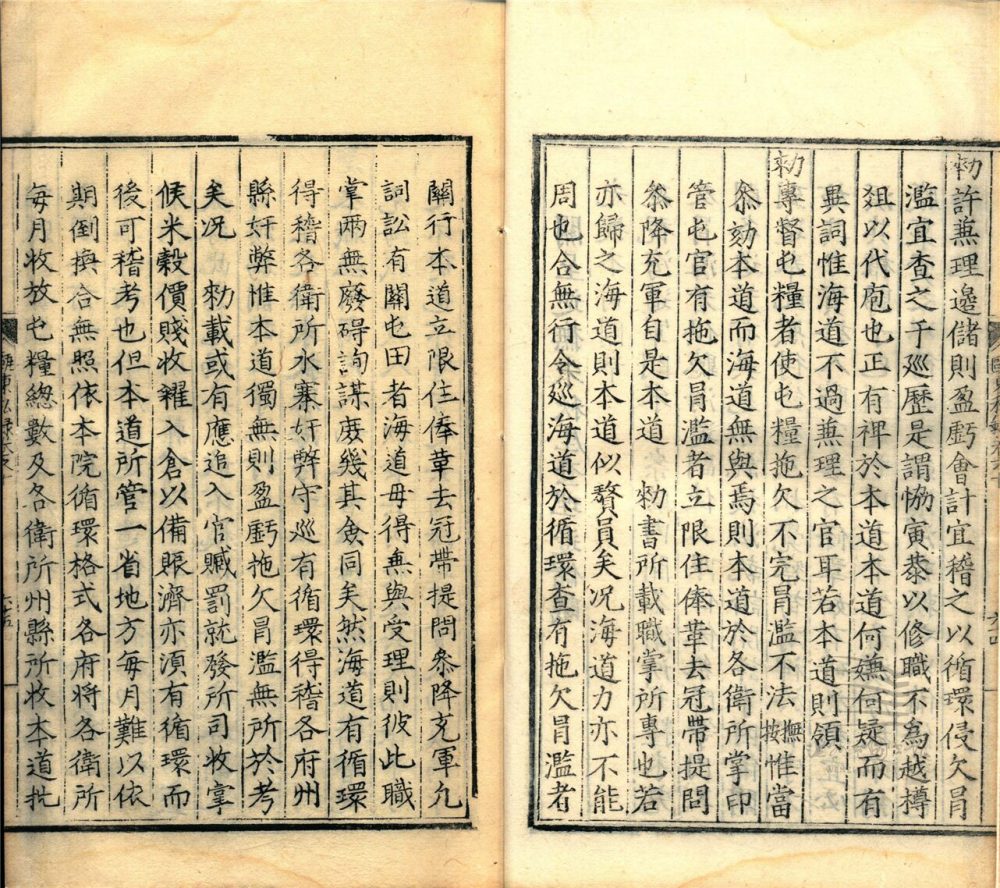 勑許兼理邊儲則盈虧會計宜稽之以循環侵欠冒
濫宜查之于廵歷是謂恊寅恭以修職不爲越樽
俎以代庖也正有裨於本道本道何嫌何疑而有
異詞惟海道不過兼理之官耳若本道則領
勑專督屯糧者使屯糧拖欠不完冒濫不法撫按惟當
叅劾本道而海道無與焉則本道於各衛所掌印
管屯官有拖欠冒濫者立限住俸革去冠帶提問
叅降充軍自是本道 勑書所載職掌所專也若
亦歸之海道則本道似贅員矣况海道力亦不能
周也合無行令廵海道於循環查有拖欠冒濫者
關行本道立限住俸革去冠帶提問叅降充軍凢
詞訟有關屯田者海道毋得兼與受理則彼此職
掌兩無廢碍詢謀庶幾其僉同矣然海道有循環
得稽各衛所水寨奸弊守廵有循環得稽各府州
縣奸弊惟本道獨無則盈虧拖欠冒濫無所於考
矣况 勑載或有應追入官贓罰就發所司收掌
候米穀價賤收糴入倉以備賑濟亦湏有循環而
後可稽考也但本道所管一省地方每月難以依
期倒換合無照依本院循環格式各府將各衛所
每月收放屯糧緫數及各衛所州縣所收本道批